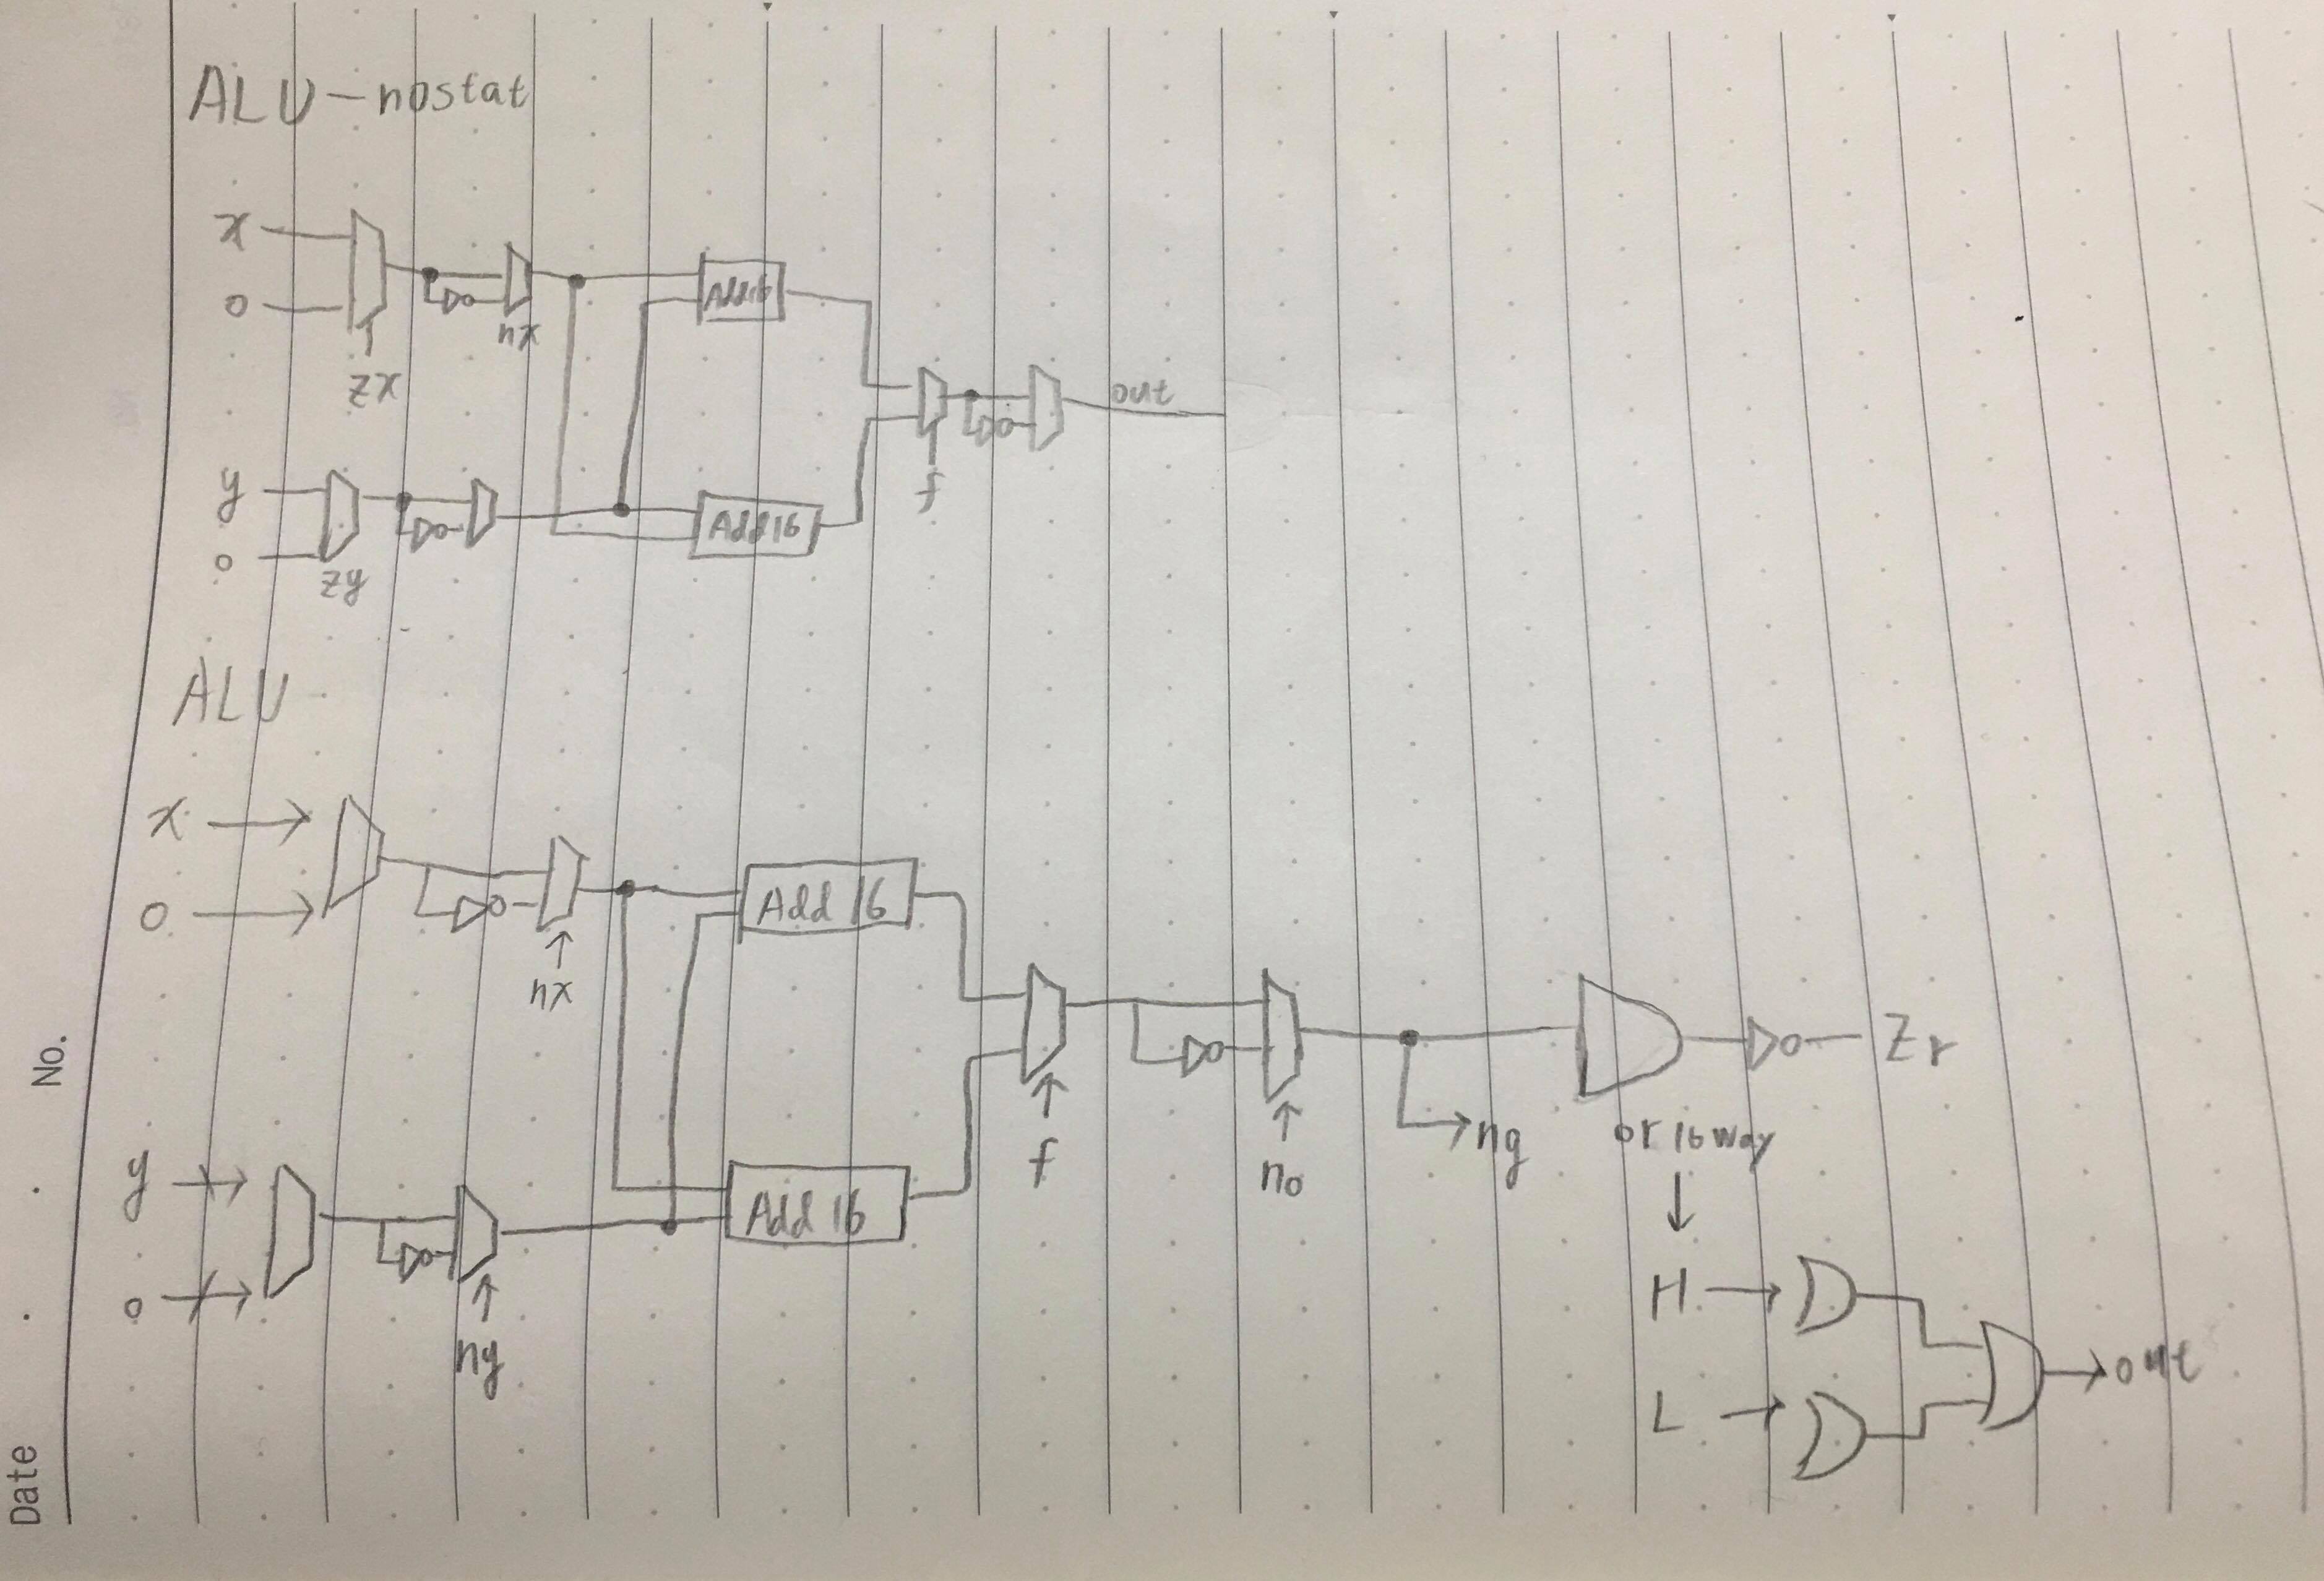 ALU-nostat
x
0
zx
nx
Add16
y
0
zy
Add16
f
out
ALU
x
0
nx
Add 16
y
0
ny
Add 16
f
no
ng
or 16 way
Zr
H
L
out
No.
Date